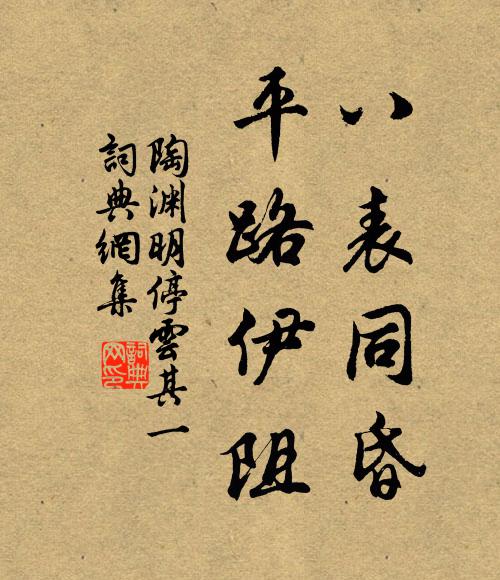 八表同昏
平路伊阻
陶渊明停雲其一
詞典網集
詞典网印